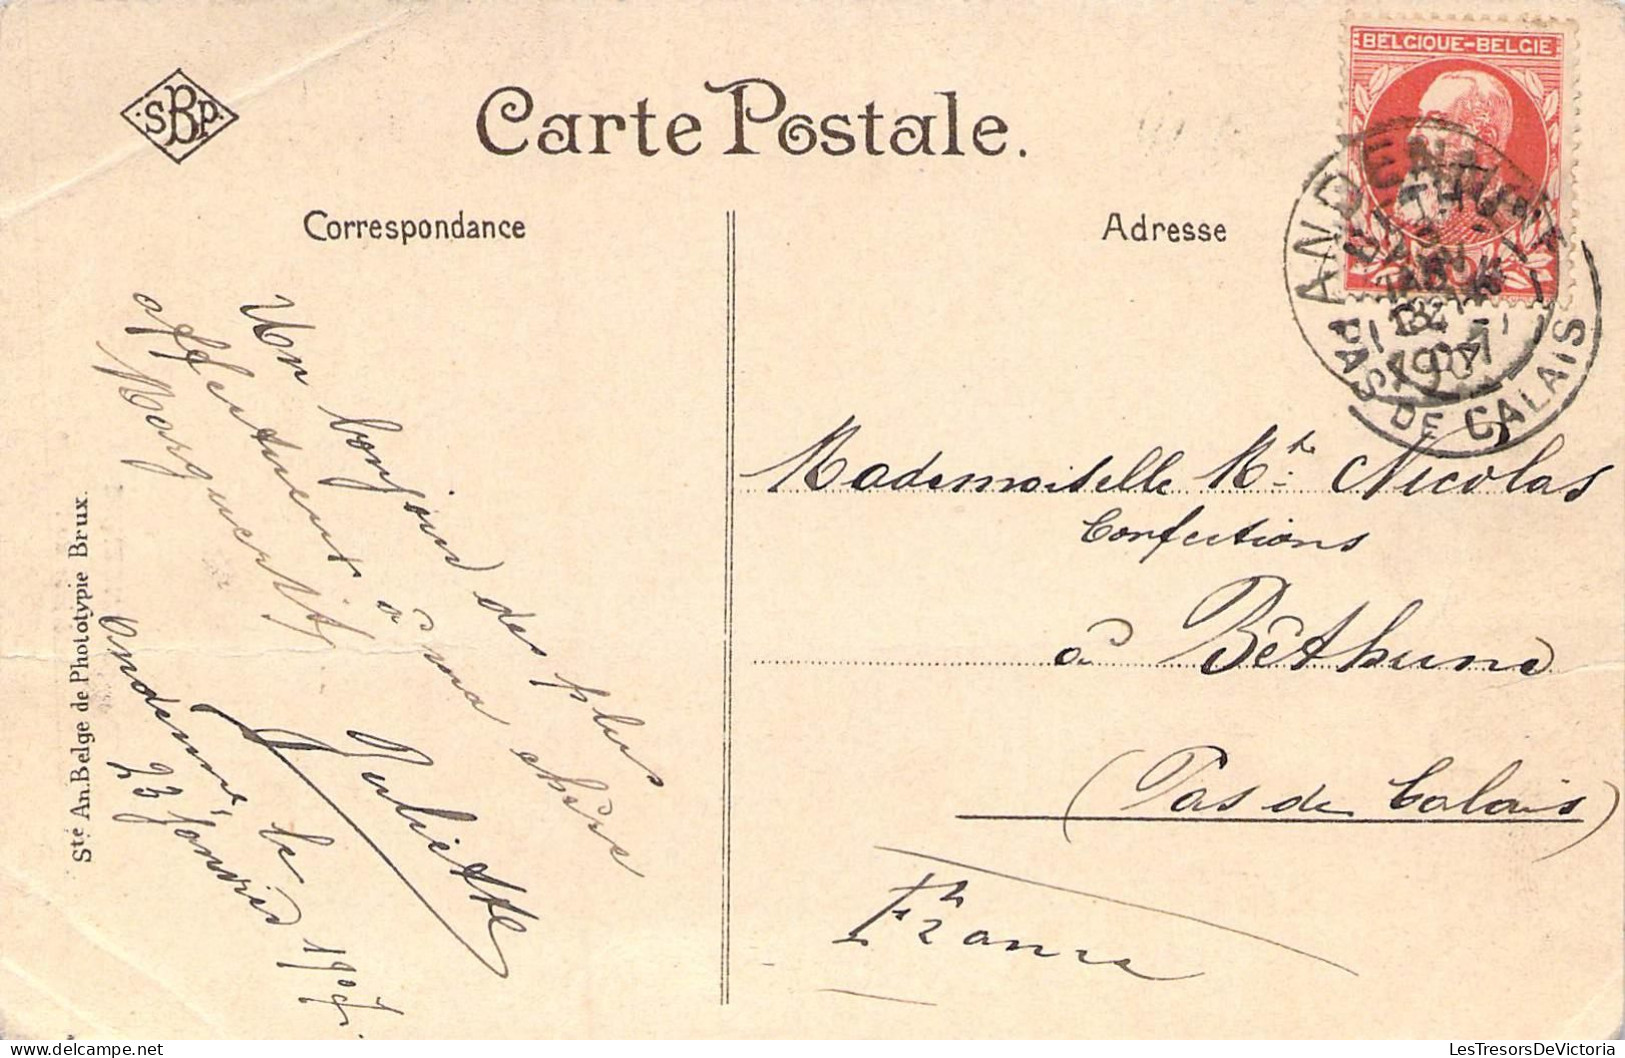 SBP
Carte Postale.
BELGIQUE-BELGIE
Correspondance
Adresse
ANDENNE
PAS DE CALAIS
1907
Un bonjour des plus
affectueux à ma chère
Marguerite
Juliette
Andenne, le
23 Janvier 1907.
Mademoiselle Mte Nicolas
Confections
à Béthune
(Pas de Calais)
France
Sté An. Belge de Phototypie Brux.
LesTresorsDeVictoria